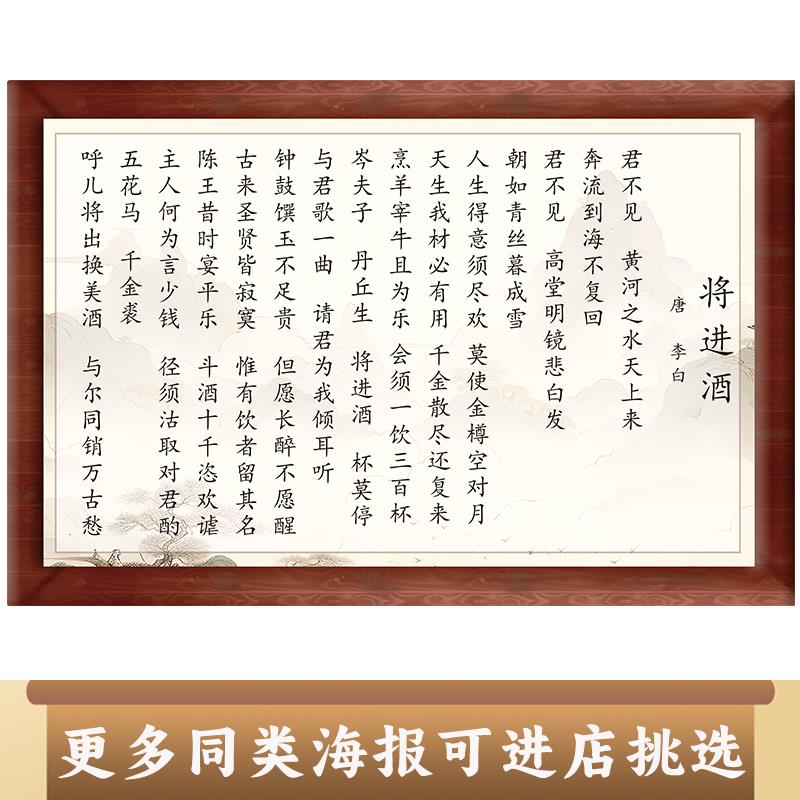 将进酒
唐 李白
君不见 黄河之水天上来
奔流到海不复回
君不见 高堂明镜悲白发
朝如青丝暮成雪
人生得意须尽欢 莫使金樽空对月
天生我材必有用 千金散尽还复来
烹羊宰牛且为乐 会须一饮三百杯
岑夫子 丹丘生 将进酒 杯莫停
与君歌一曲 请君为我倾耳听
钟鼓馔玉不足贵 但愿长醉不愿醒
古来圣贤皆寂寞 惟有饮者留其名
陈王昔时宴平乐 斗酒十千恣欢谑
主人何为言少钱 径须沽取对君酌
五花马 千金裘
呼儿将出换美酒 与尔同销万古愁
更多同类海报可进店挑选